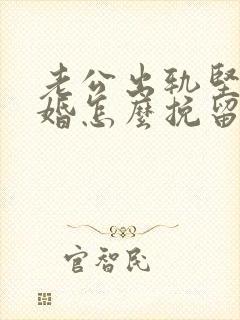 老公出轨坚
婚怎麽挽留
官智民